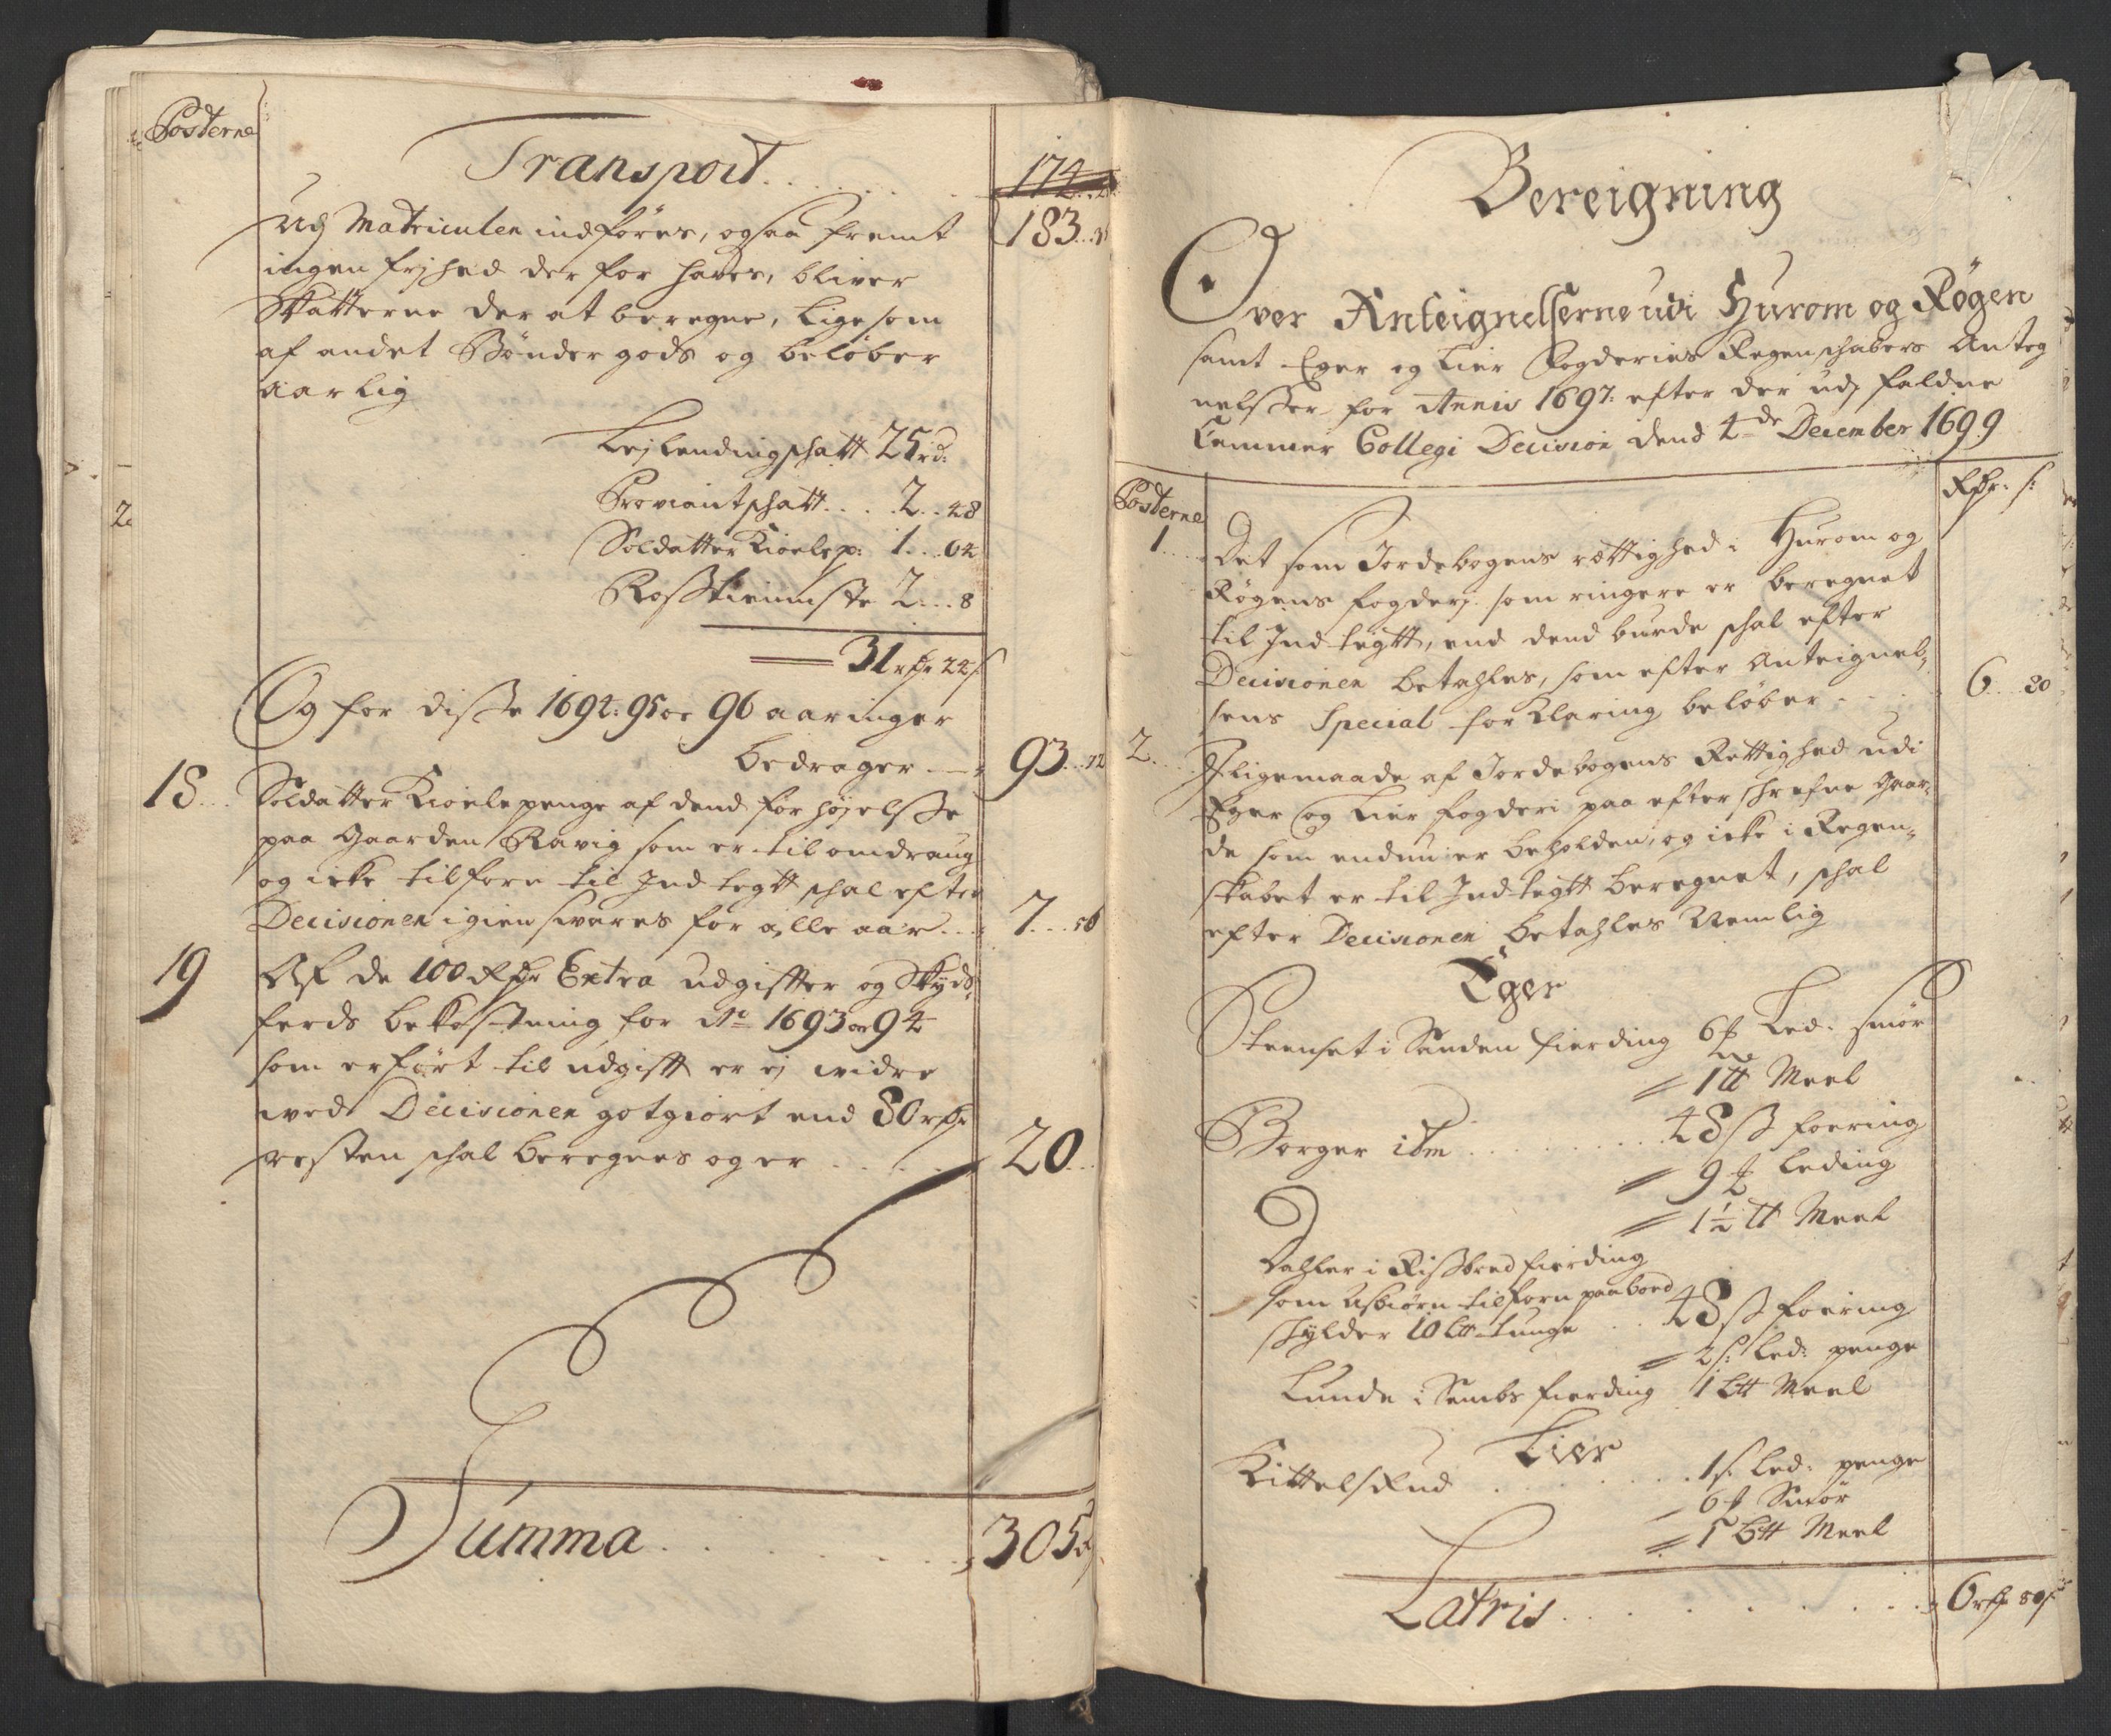 Posterne
Transport
174
Udj Matriculen indføres, ogsaa fremt
183
ingen frjhed der for hafves, bliver
Skatterne der at beregne, lige som
af andet Bønder gods og beløber
aarlig
Lejlendingschatt 25 rd:
Proviantschatt . . . . 2 . . 48
Soldatter Kioelep: 1 . . . 64
Rosstieniste 2 . . . 8
31 rdr 24 s
Og for disse 1694: 95 oc 96 aaringer
bedrager 93 . . 72
18 . . Soldatter Kioelepenge af dend forhøjelsse
paa Gaarden Ravig som er til omdraug
og icke tilforn til Indtegtt schal efter
Decisionen igien svares for alle aar . . . 7 . . . 56
19 Af de 100 Rdr Extra udgiffter og Skyds
ferds bekostning for Ao 1693 oc 94
som er ført til udgifft er ej widre
wed Decisionen gotgiort end 80 rdr
resten schal beregnes og er . . . . . 20 . . .
Summa . . . . . . . . . 305
2
Bereigning
Over Anteignelsserne udi Hurom og Røgen
samt Eger og Lier Fogderies Regenschabers Anteg
nelsser for Annis 1697: efter der udj faldne
Cammer Collegi Decision dend 4de December 1699
Posterne
Rdr. s:
1 . . . Det som Jordebogens rettighed i Hurom og
Røgens fogderj som ringere er beregnet
til Indtegtt, end dend burde schal efter
Decisionen betahles, som efter Anteignel
sens Special forklaring beløber . . . . 6 . . 80
2 . . . Ifligemaade af Jordebogens Rettighed udi
Eger og Lier fogderi paa efterschrefne Gaar
de som endnu er beholden, og icke i Regen
skabet er til Indtegtt beregnet, schal
efter Decisionen betahles Nemlig
Eger
Steenset i Sanden fierding 6 Led: smør
1 tt Meel
Borger itm . . . . . . . . 48 ß foering
9 leding
1½ tt Meel
Dahler i Rissbred fierding
som Asbiørn tilforn paaboed
schylder 10 Ltt tunge . . 48 ß foering
2 s: led: penge
Lunde i Sembs fierding 1 Ltt Meel
Lier
Kittelsrud . . . . . . . 1 s. led: penge
6 Smør
1 Ltt Meel
Latris . . . . . . . . . 6 rdr 80 s